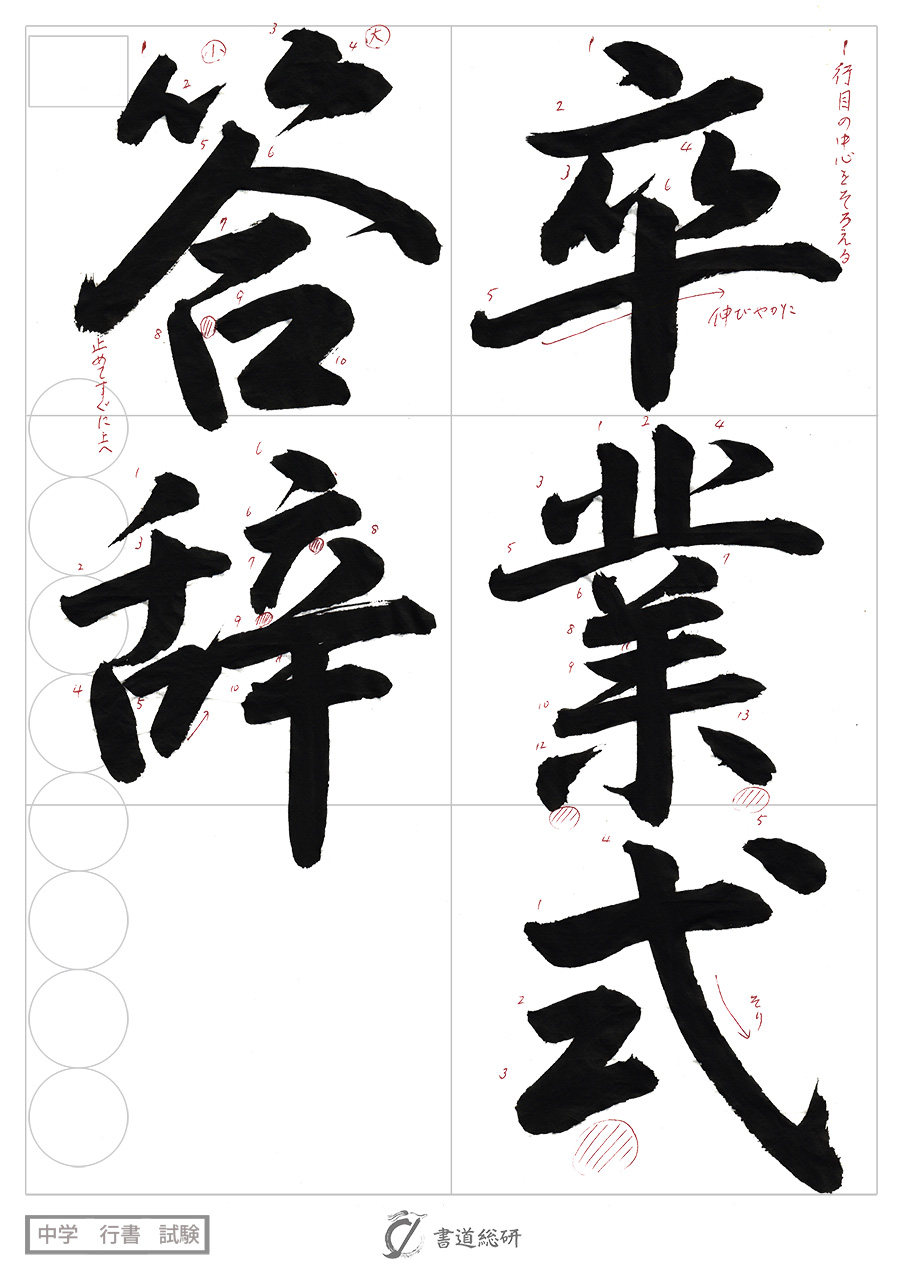 卒業式
答辞
1行目の中心をそろえる
伸びやかに
そり
大
小
止めてすぐに上へ
中学 行書 試験
書道総研